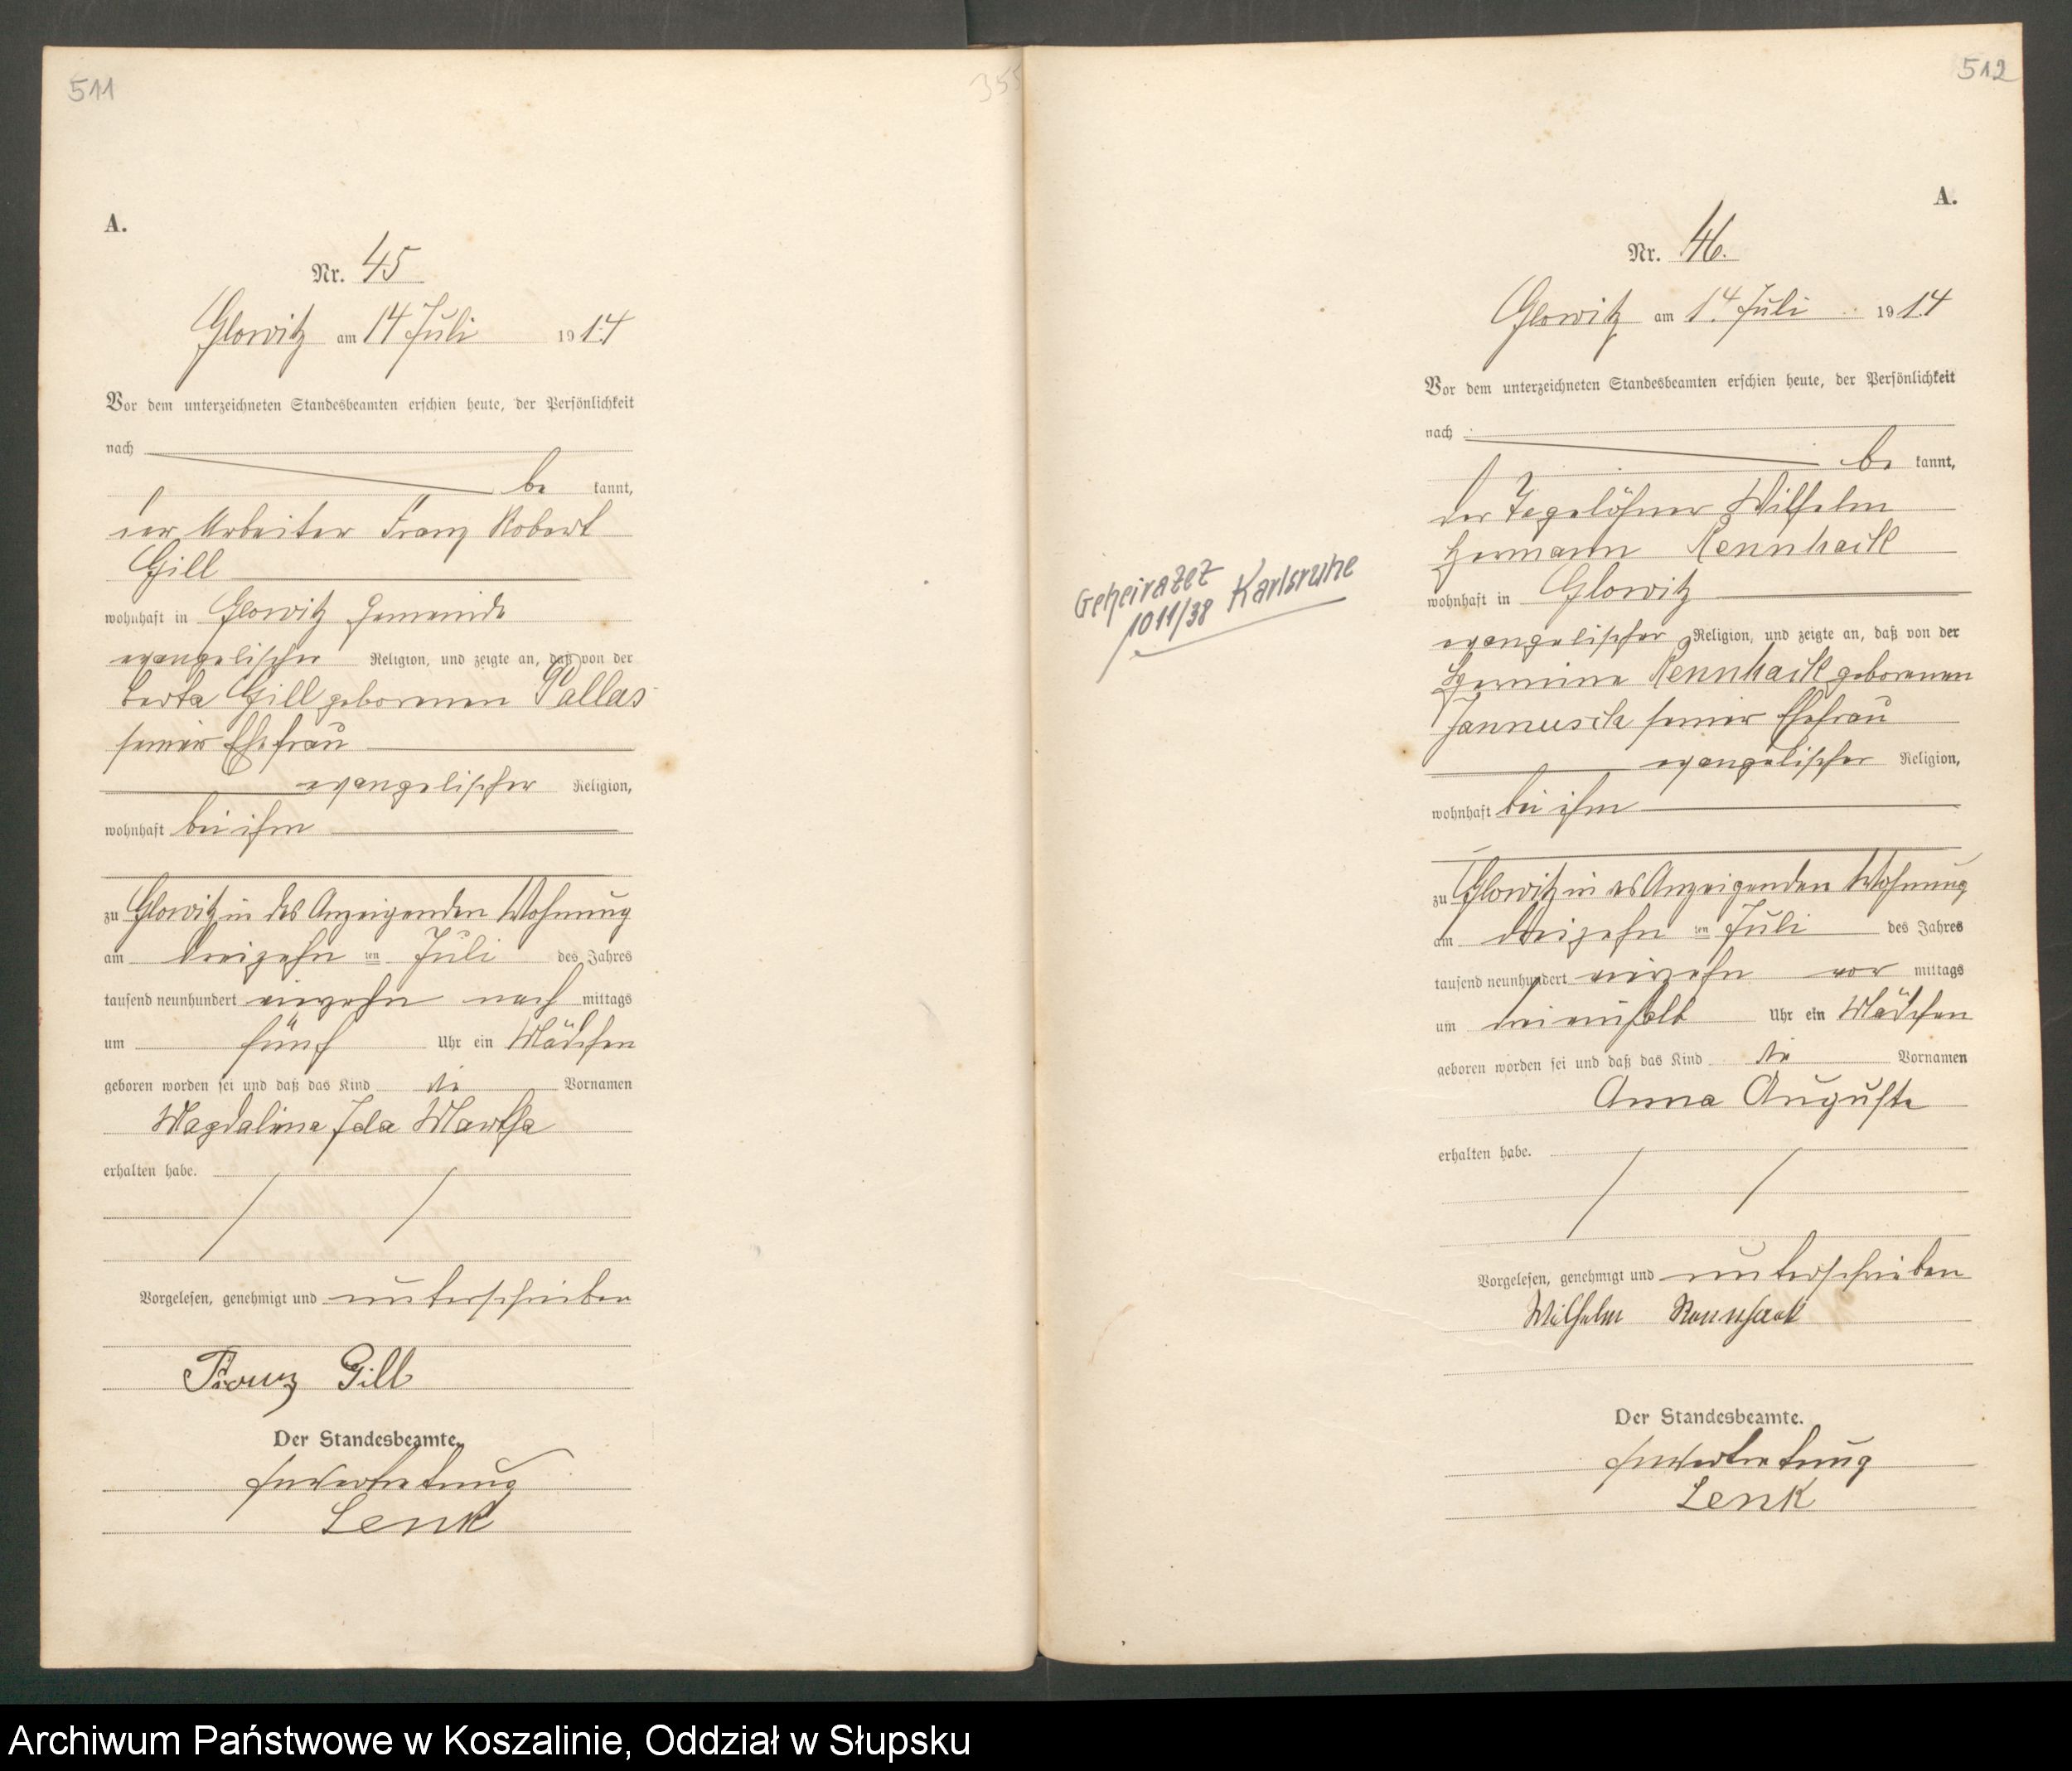 511
355
A.
Nr. 45
Glowitz am 14 Juli 1914
Vor dem unterzeichneten Standesbeamten erschien heute, der Persönlichkeit
nach
be kannt,
der Arbeiter Franz Robert
Gill
wohnhaft in Glowitz Gemeinde
evangelischer Religion, und zeigte an, daß von der
Berta Gill geborenen Pallas
seiner Ehefrau
evangelischer Religion,
wohnhaft bei ihm
zu Glowitz in des Anzeigenden Wohnung
am dreizehn ten Juli des Jahres
tausend neunhundert vierzehn nach mittags
um fünf Uhr ein Mädchen
geboren worden sei und daß das Kind die Vornamen
Magdalena Ida Martha
erhalten habe.
Vorgelesen, genehmigt und unterschrieben
Franz Gill
Der Standesbeamte.
In Vertretung
Lenk
512
A.
Nr. 46.
Glowitz am 14. Juli 1914
Vor dem unterzeichneten Standesbeamten erschien heute, der Persönlichkeit
nach
be kannt,
der Tagelöhner Wilhelm
Hermann Rennhack
wohnhaft in Glowitz
evangelischer Religion, und zeigte an, daß von der
Hermine Rennhack geborenen
Jannusch seiner Ehefrau
evangelischer Religion,
wohnhaft bei ihm
zu Glowitz in des Anzeigenden Wohnung
am dreizehn ten Juli des Jahres
tausend neunhundert vierzehn vor mittags
um dreieinhalb Uhr ein Mädchen
geboren worden sei und daß das Kind die Vornamen
Anna Auguste
erhalten habe.
Vorgelesen, genehmigt und unterschrieben
Wilhelm Rennhack
Der Standesbeamte.
In Vertretung
Lenk
Geheiratet
1011/38 Karlsruhe
Archiwum Państwowe w Koszalinie, Oddział w Słupsku